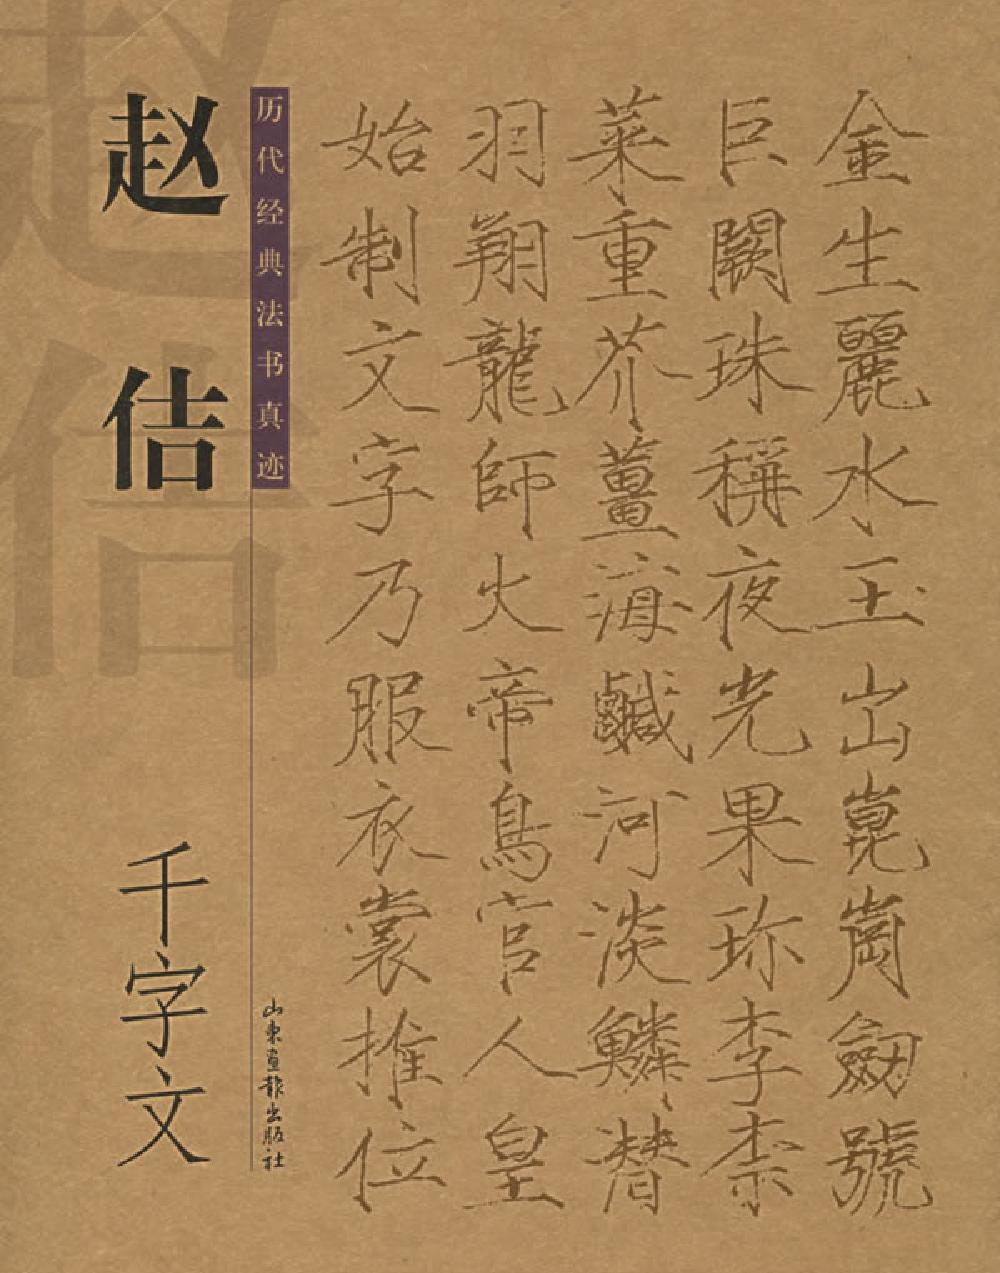 金生麗水玉出崑崗劒號
巨闕珠稱夜光果珎李柰
菜重芥薑海鹹河淡鱗潛
羽翔龍師火帝鳥官人皇
始制文字乃服衣裳推位
历代经典法书真迹
山東画報出版社
赵佶
千字文